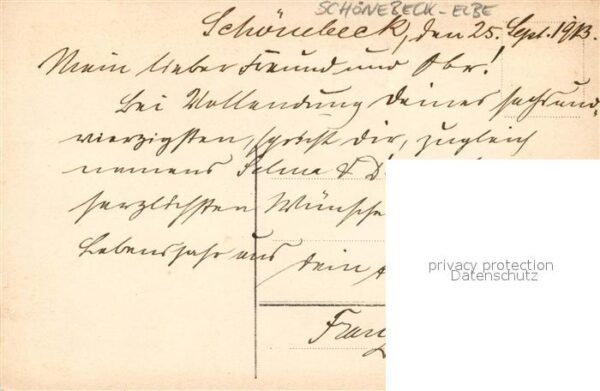 SCHÖNEBECK-ELBE
Schönebeck, den 25. Sept. 1913.
Mein lieber Freund und Obr!
Bei Vollendung deines sechsund-
vierzigsten, spricht dir, zugleich
namens Selma &
herzlichsten Wünsche
Lebensjahr aus dein
privacy protection
Datenschutz